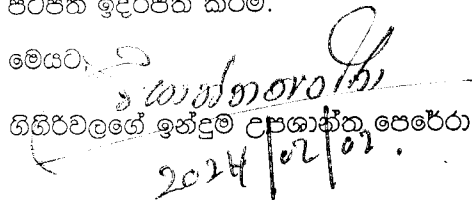 පිටපත් ඉදිරිපත් කරමි.
මෙයට,
ගිගිරිවලගේ ඉන්දුම උපශාන්ත පෙරේරා
2024/02/02.